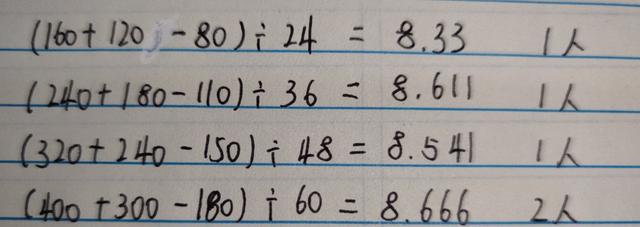 (160+120-80)÷24 = 8.33 1人
(240+180-110)÷36 = 8.611 1人
(320+240-150)÷48 = 8.541 1人
(400+300-180)÷60 = 8.666 2人